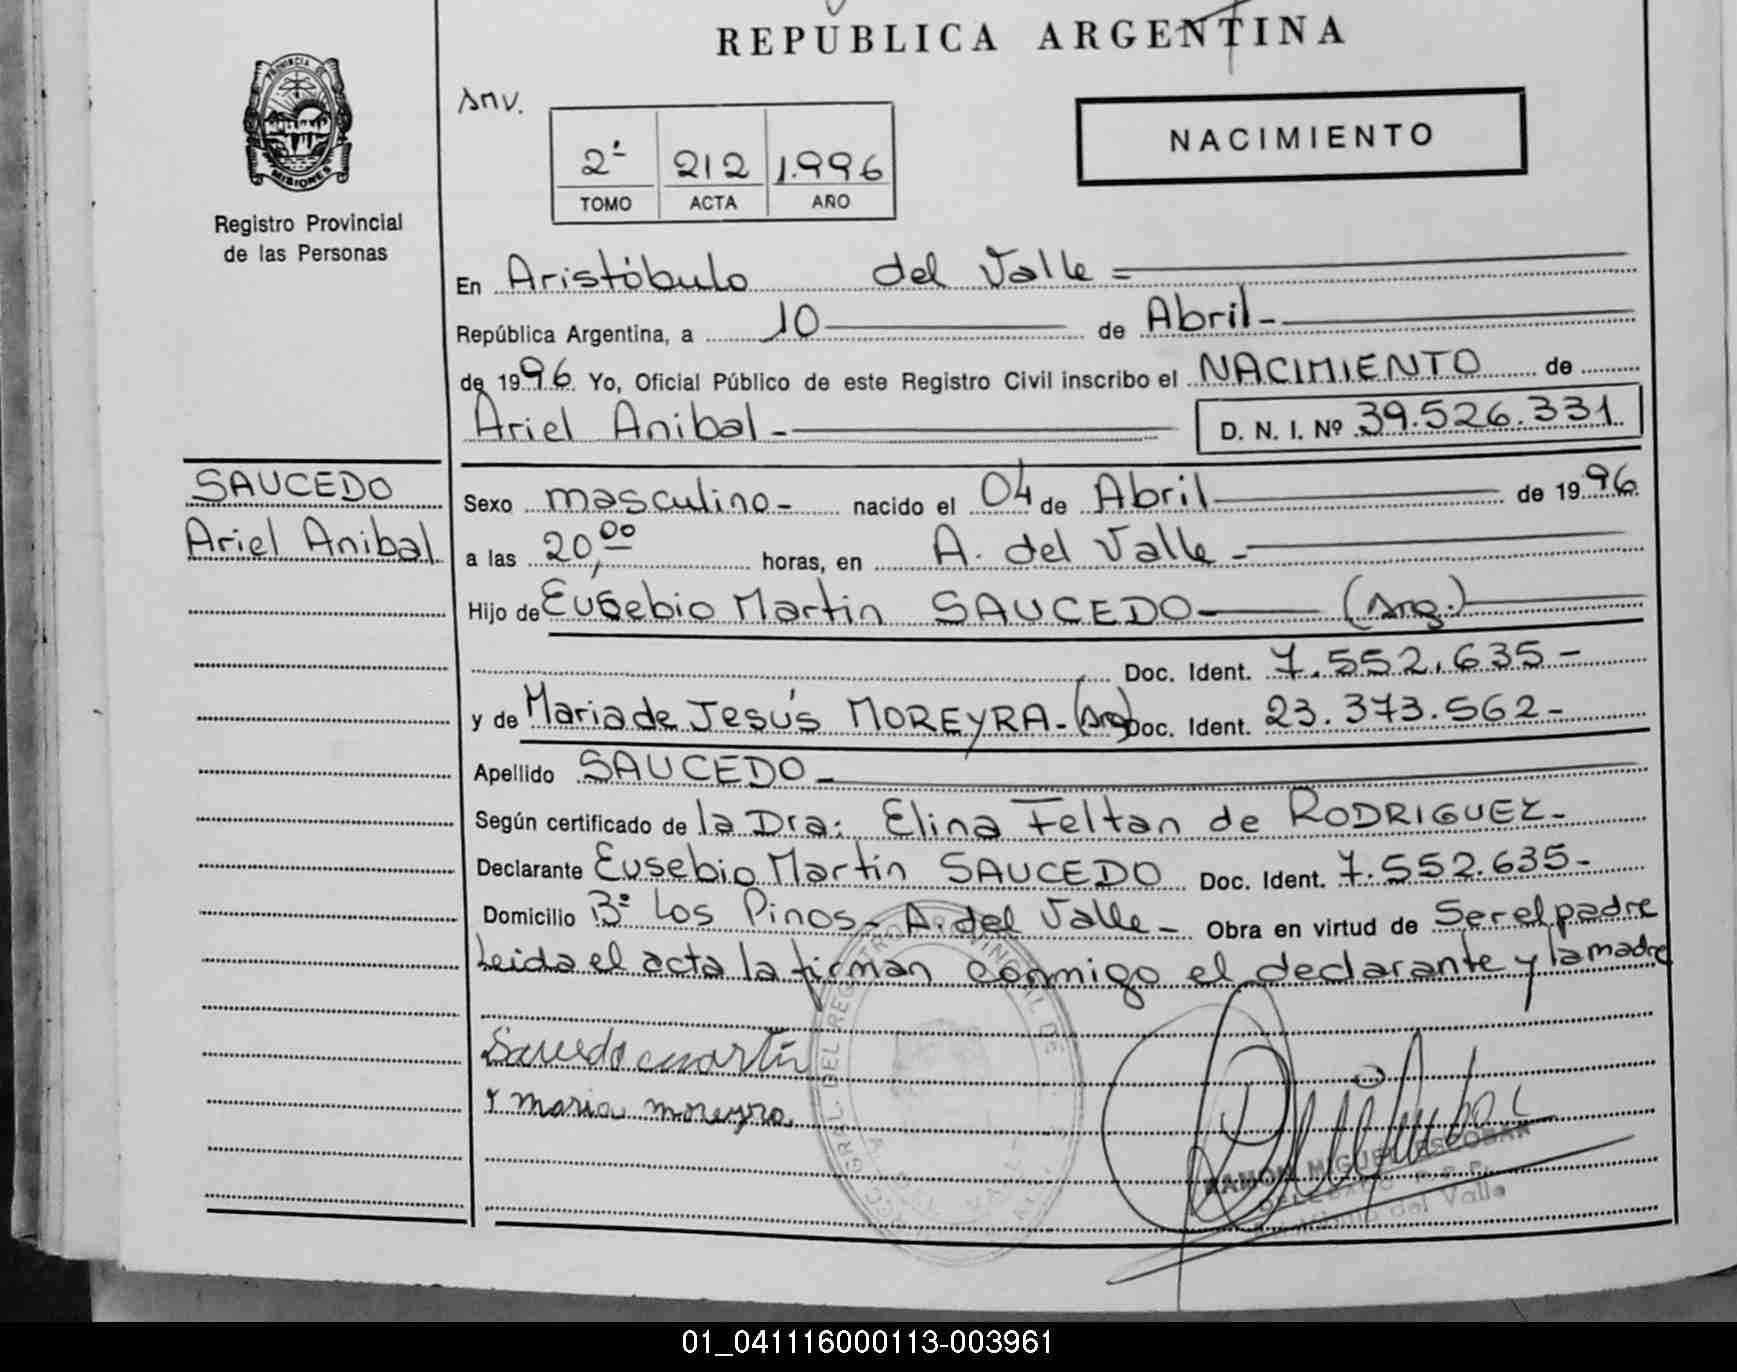 REPUBLICA ARGENTINA
PROVINCIA DE
MISIONES
Registro Provincial
de las Personas
2º 212 1.996
TOMO ACTA AÑO
NACIMIENTO
En Aristóbulo del Valle =
República Argentina, a 10 de Abril -
de 1996. Yo, Oficial Público de este Registro Civil inscribo el NACIMIENTO de
Ariel Anibal - D. N. I. Nº 39.526.331
SAUCEDO
Ariel Anibal
Sexo masculino - nacido el 04 de Abril de 1996
a las 20,00 horas, en A. del Valle -
Hijo de Eusebio Martin SAUCEDO (Arg.)
Doc. Ident. 7.552.635 -
y de Maria de Jesús MOREYRA - (Arg) Doc. Ident. 23.373.562 -
Apellido SAUCEDO -
Según certificado de la Dra: Elina Feltan de RODRIGUEZ -
Declarante Eusebio Martin SAUCEDO Doc. Ident. 7.552.635 -
Domicilio Bº Los Pinos - A. del Valle - Obra en virtud de Ser el padre
Leida el acta la firman conmigo el declarante y la madre
Saucedo martin
maria moreyra.
RAMON MIGUEL ESCOBAR
del Valle
01_041116000113-003961